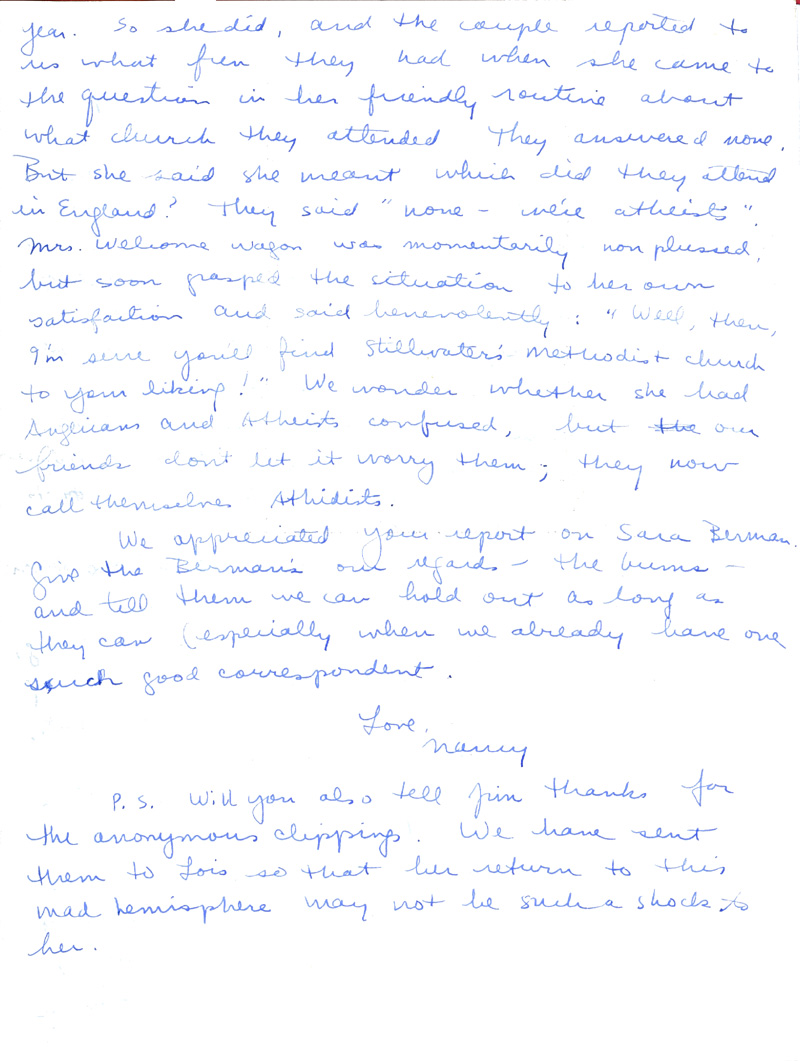 year. So she did, and the couple reported to
us what fun they had when she came to
the question in her friendly routine about
what church they attended They answered none.
But she said she meant which did they attend
in England? They said "none - we're atheists".
Mrs. Welcome Wagon was momentarily non plussed,
but soon grasped the situation to her own
satisfaction and said benevolently: "Well, then,
I'm sure you'll find Stillwater's Methodist church
to your liking!" We wonder whether she had
Anglicans and Atheists confused, but the our
friends don't let it worry them; they now
call themselves Athidists.
We appreciated your report on Sara Berman.
Give the Berman's our regards - the bums -
and tell them we can hold out as long as
they can (especially when we already have one
such good correspondent.
Love,
Nancy
P.S. Will you also tell Jim thanks for
the anonymous clippings. We have sent
them to Lois so that her return to this
mad hemisphere may not be such a shock to
her.